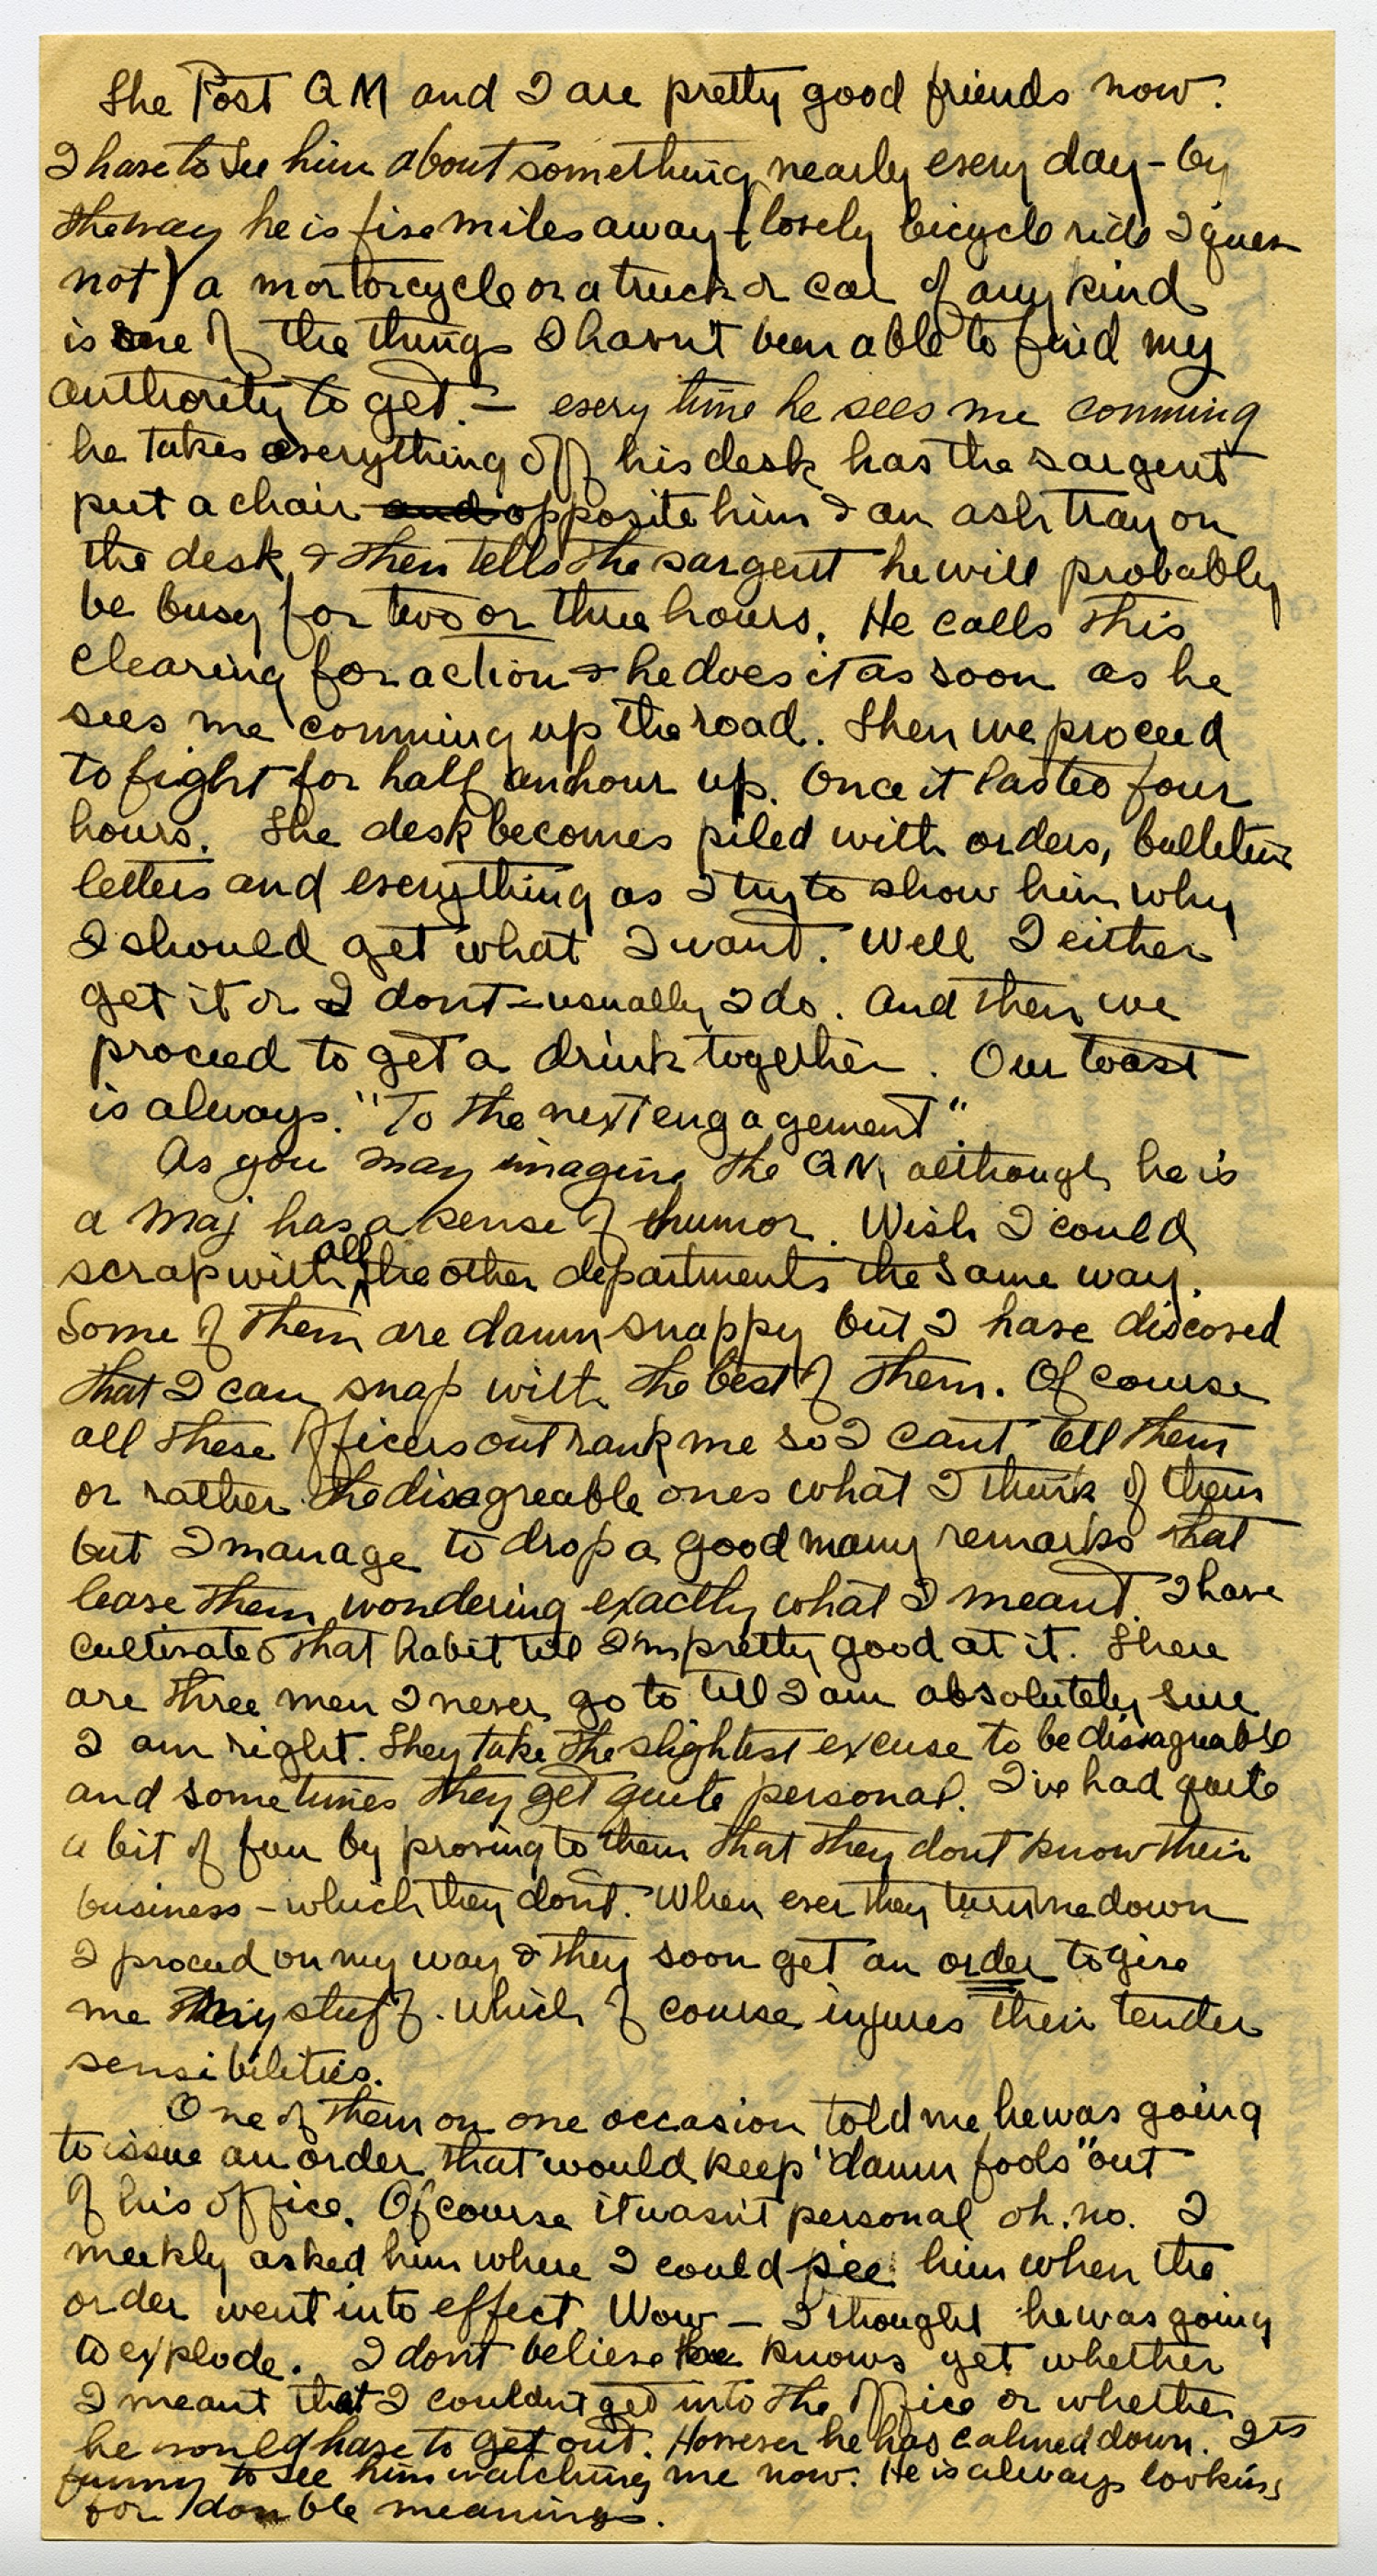 The Post QM and I are pretty good friends now.
I have to see him about something nearly every day - by
the way he is five miles away - (lovely bicycle ride I guess
not) a mortorcycle or a truck or car of any kind
is one of the things I havn't been able to find my
authority to get. - every time he sees me comming
he takes everything off his desk has the sargent
put a chair and opposite him & an ash tray on
the desk & then tells the sargent he will probably
be busy for two or three hours. He calls this
clearing for action & he does it as soon as he
sees me comming up the road. Then we proceed
to fight for half an hour up. Once it lasted four
hours. The desk becomes piled with orders, bulletins
letters and everything as I try to show him why
I should get what I want. Well I either
get it or I dont - usually I do. And then we
proceed to get a drink together. Our toast
is always. "To the next engagement".
As you may imagine the QM, although he is
a Maj has a sense of humor. Wish I could
scrap with all the other departments the same way.
Some of them are damn snappy but I have discoved
that I can snap with the best of them. Of course
all these officers out rank me so I cant tell them
or rather the disagreable ones what I think of them
but I manage to drop a good many remarks that
leave them wondering exactly what I meant. I have
cultivated that habit till I'm pretty good at it. There
are three men I never go to till I am absolutely sure
I am right. They take the slightest excuse to be dissagreable
and sometimes they get quite personal. I've had quite
a bit of fun by proving to them that they dont know their
business - which they don't. When ever they turn me down
I proceed on my way & they soon get an order to give
me my stuff. Which of course injures their tender
sensibilities.
One of them on one occasion told me he was going
to issue an order that would keep "damn fools" out
of his office. Of course it wasn't personal oh. no. I
meekly asked him where I could see him when the
order went into effect. Wow - I thought he was going
to explode. I dont believe he knows yet whether
I meant that I couldn't get into the office or whether
he would have to get out. However he has calmed down. Its
funny to see him watching me now. He is always looking
for double meanings.